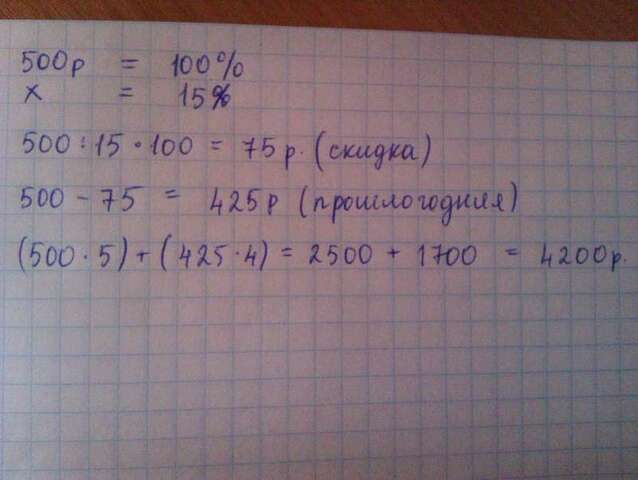 500р = 100%
x = 15%
500 : 15 · 100 = 75 р. (скидка)
500 - 75 = 425р (прошлогодняя)
(500 · 5) + (425 · 4) = 2500 + 1700 = 4200р.